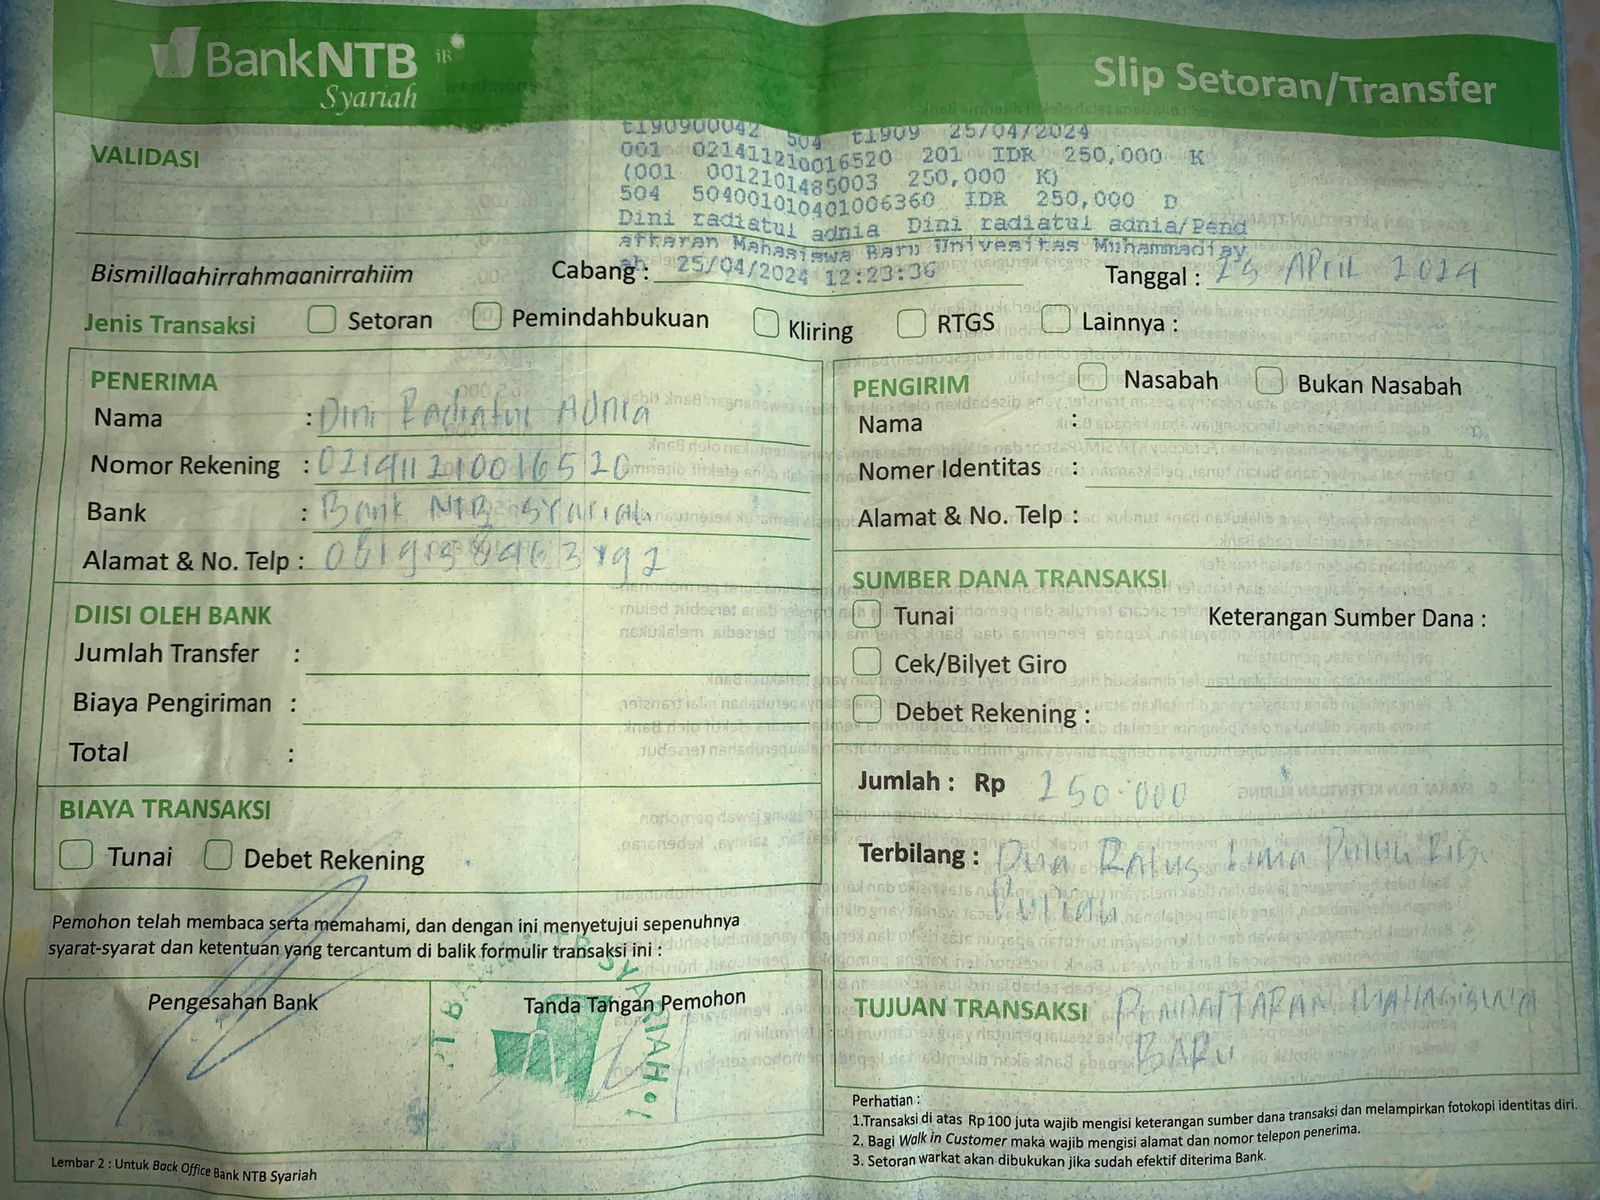 BankNTB iB
Syariah
Slip Setoran/Transfer
VALIDASI
t190900042 504 t1909 25/04/2024
001 021411210016520 201 IDR 250,000 K
(001 0012101485003 250,000 K)
504 504001010401006360 IDR 250,000 D
Dini radiatul adnia Dini radiatul adnia/Pend
aftaran Mahasiswa Baru Univesitas Muhammadiay
ah 25/04/2024 12:23:36
Bismillaahirrahmaanirrahiim
Cabang :
Tanggal : 25 APRIL 2024
Jenis Transaksi Setoran Pemindahbukuan Kliring RTGS Lainnya :
PENERIMA
Nama : Dini Radiatul Adnia
Nomor Rekening : 021411210016520
Bank : Bank NTB Syariah
Alamat & No. Telp :
DIISI OLEH BANK
Jumlah Transfer :
Biaya Pengiriman :
Total :
BIAYA TRANSAKSI
Tunai Debet Rekening
Pemohon telah membaca serta memahami, dan dengan ini menyetujui sepenuhnya
syarat-syarat dan ketentuan yang tercantum di balik formulir transaksi ini :
Pengesahan Bank
Tanda Tangan Pemohon
PT BANK NTB SYARIAH
Lembar 2 : Untuk Back Office Bank NTB Syariah
PENGIRIM Nasabah Bukan Nasabah
Nama :
Nomer Identitas :
Alamat & No. Telp :
SUMBER DANA TRANSAKSI
Tunai Keterangan Sumber Dana :
Cek/Bilyet Giro
Debet Rekening :
Jumlah : Rp 250.000
Terbilang : Dua Ratus Lima Puluh Ribu
Rupiah
TUJUAN TRANSAKSI PENDAFTARAN MAHASISWA
BARU
Perhatian :
1.Transaksi di atas Rp 100 juta wajib mengisi keterangan sumber dana transaksi dan melampirkan fotokopi identitas diri.
2. Bagi Walk in Customer maka wajib mengisi alamat dan nomor telepon penerima.
3. Setoran warkat akan dibukukan jika sudah efektif diterima Bank.